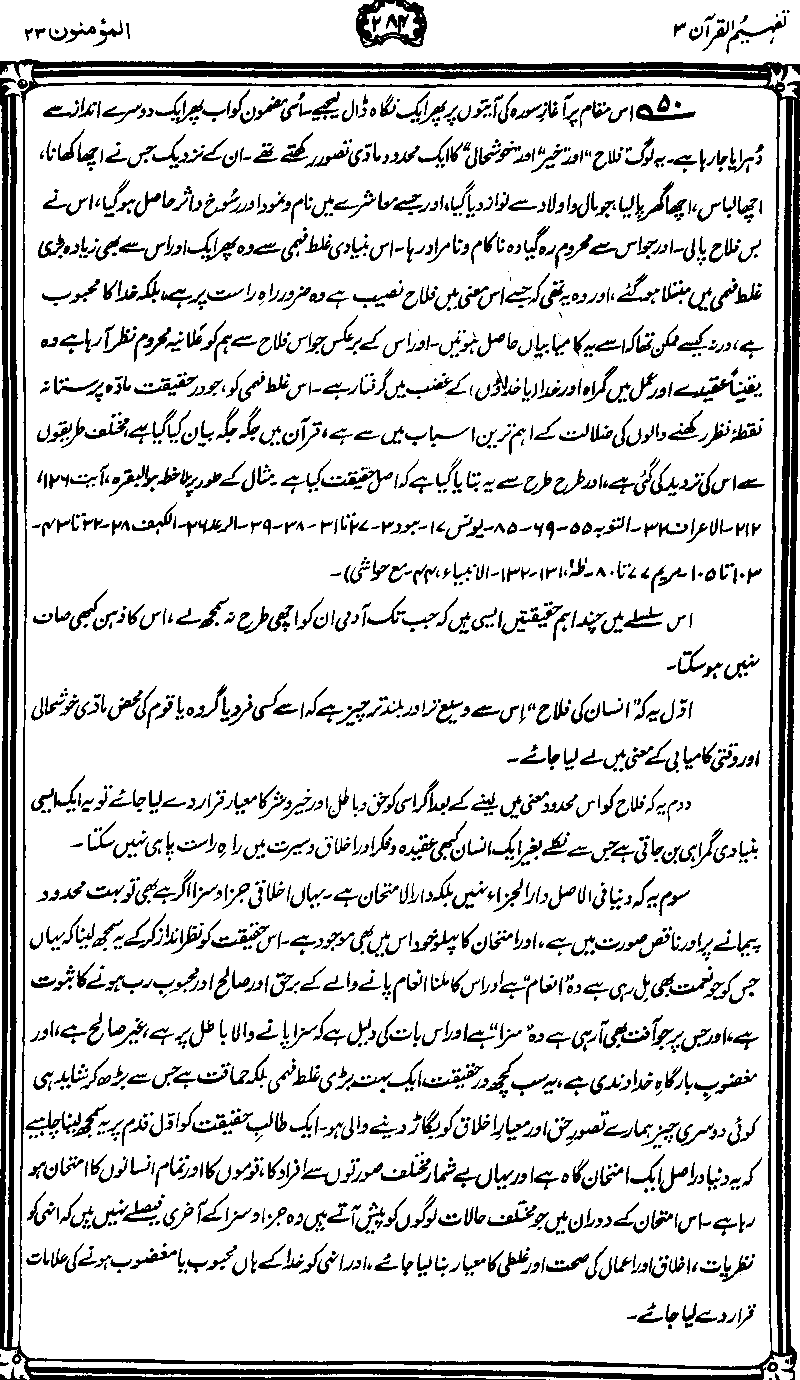 تفہیم القرآن ۳
۲۸۴
المؤمنون ۲۳
۵۰ اس مقام پر آغازِ سورہ کی آیتوں پر پھر ایک نگاہ ڈال لیجیے۔ اُسی مضمون کو اب پھر ایک دوسرے انداز سے
دُہرایا جا رہا ہے۔ یہ لوگ ”فلاح“ اور ”خیر“ اور ”خوشحالی“ کا ایک محدود مادّی تصور رکھتے تھے۔ ان کے نزدیک جس نے اچھا کھانا،
اچھا لباس، اچھا گھر پا لیا، جو مال و اولاد سے نواز دیا گیا، اور جسے معاشرے میں نام و نمود اور رسُوخ و اثر حاصل ہو گیا، اس نے
بس فلاح پا لی۔ اور جو اس سے محروم رہ گیا وہ ناکام و نامراد رہا۔ اس بنیادی غلط فہمی سے وہ پھر ایک اور اس سے بھی زیادہ بڑی
غلط فہمی میں مبتلا ہو گئے، اور وہ یہ تھی کہ جسے اس معنی میں فلاح نصیب ہے وہ ضرور راہِ راست پر ہے، بلکہ خدا کا محبوب
ہے، ورنہ کیسے ممکن تھا کہ اسے یہ کامیابیاں حاصل ہوتیں۔ اور اس کے برعکس جو اس فلاح سے ہم کو عَلانیہ محروم نظر آ رہا ہے وہ
یقیناً عقیدے اور عمل میں گمراہ اور خدا (یا خداؤں) کے غضب میں گرفتار ہے۔ اس غلط فہمی کو، جو درحقیقت مادّہ پرستانہ
نقطۂ نظر رکھنے والوں کی ضلالت کے اہم ترین اسباب میں سے ہے، قرآن میں جگہ جگہ بیان کیا گیا ہے، مختلف طریقوں
سے اس کی تردید کی گئی ہے، اور طرح طرح سے یہ بتایا گیا ہے کہ اصل حقیقت کیا ہے (مثال کے طور پر ملاحظہ ہو البقرہ، آیت ۱۲۶،
۲۱۲۔ الاعراف ۳۲۔ التوبہ ۵۵۔ ۶۹۔ ۸۵۔ یونس ۱۷۔ ہود ۳۔ ۲۷ تا ۳۱۔ ۳۸۔ ۳۹۔ الرعد ۲۶۔ الکہف ۲۸۔ ۳۲ تا ۴۳۔
۱۰۳ تا ۱۰۵۔ مریم ۷۷ تا ۸۰۔ طٰہٰ، ۱۳۱۔ ۱۳۲۔ الانبیاء، ۴۴۔ مع حواشی)۔
اس سلسلے میں چند اہم حقیقتیں ایسی ہیں کہ جب تک آدمی ان کو اچھی طرح نہ سمجھ لے، اس کا ذہن کبھی صاف
نہیں ہو سکتا۔
اوّل یہ کہ ”انسان کی فلاح“ اِس سے وسیع تر اور بلند تر چیز ہے کہ اسے کسی فرد یا گروہ یا قوم کی محض مادّی خوشحالی
اور وقتی کامیابی کے معنی میں لے لیا جائے۔
دوم یہ کہ فلاح کو اس محدود معنی میں لینے کے بعد اگر اسی کو حق و باطل اور خیر و شر کا معیار قرار دے لیا جائے تو یہ ایک ایسی
بنیادی گمراہی بن جاتی ہے جس سے نکلے بغیر ایک انسان کبھی عقیدہ و فکر اور اخلاق و سیرت میں راہِ راست پا ہی نہیں سکتا۔
سوم یہ کہ دنیا فی الاصل دارالجزاء نہیں بلکہ دارالامتحان ہے۔ یہاں اخلاقی جزا و سزا اگر ہے بھی تو بہت محدود
پیمانے پر اور ناقص صورت میں ہے، اور امتحان کا پہلو خود اس میں بھی موجود ہے۔ اس حقیقت کو نظر انداز کر کے یہ سمجھ لینا کہ یہاں
جس کو جو نعمت بھی مل رہی ہے وہ ”انعام“ ہے اور اس کا ملنا انعام پانے والے کے برحق اور صالح اور محبوبِ رب ہونے کا ثبوت
ہے، اور جس پر جو آفت بھی آ رہی ہے وہ ”سزا“ ہے اور اس بات کی دلیل ہے کہ سزا پانے والا باطل پر ہے، غیر صالح ہے، اور
مغضوبِ بارگاہِ خداوندی ہے، یہ سب کچھ درحقیقت ایک بہت بڑی غلط فہمی بلکہ حماقت ہے جس سے بڑھ کر شاید ہی
کوئی دوسری چیز ہمارے تصورِ حق اور معیارِ اخلاق کو بگاڑ دینے والی ہو۔ ایک طالبِ حقیقت کو اوّل قدم پر یہ سمجھ لینا چاہیے
کہ یہ دنیا دراصل ایک امتحان گاہ ہے اور یہاں بے شمار مختلف صورتوں سے افراد کا، قوموں کا اور تمام انسانوں کا امتحان ہو
رہا ہے۔ اس امتحان کے دوران میں جو مختلف حالات لوگوں کو پیش آتے ہیں وہ جزا و سزا کے آخری فیصلے نہیں ہیں کہ انہی کو
نظریات، اخلاق اور اعمال کی صحت اور غلطی کا معیار بنا لیا جائے، اور انہی کو خدا کے ہاں محبوب یا مغضوب ہونے کی علامات
قرار دے لیا جائے۔